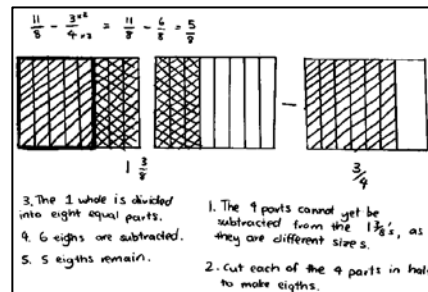 11/8 - 3×2/4×2 = 11/8 - 6/8 = 5/8
—
1 3/8
3/4
3. The 1 whole is divided
into eight equal parts.
4. 6 eighs are subtracted.
5. 5 eigths remain.
1. The 4 parts cannot yet be
subtracted from the 1 3/8's, as
they are different sizes.
2. Cut each of the 4 parts in half
to make eigths.